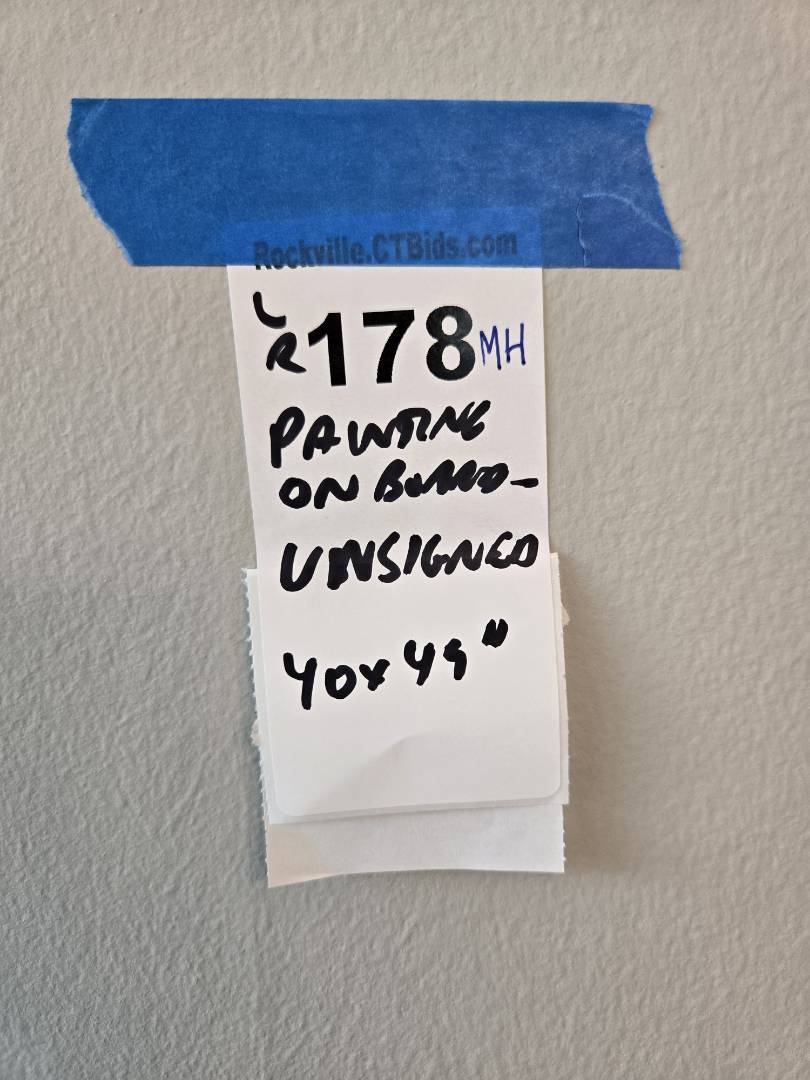 Rockville.CTBids.com
L
R 178 MH
PAINTING
ON BOARD-
UNSIGNED
40x49"